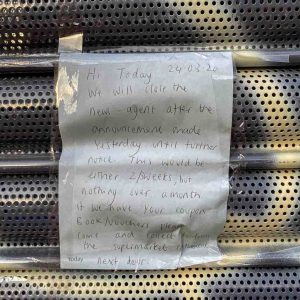 Hi Today 24.03.20
We will close the
new-agent after the
announcement made
yesterday until further
notice. This would be
either 2/weeks, but
nothing over a month
if we have your coupon
Book/vouchers please
come and collect from
the supermarket
next door
Today